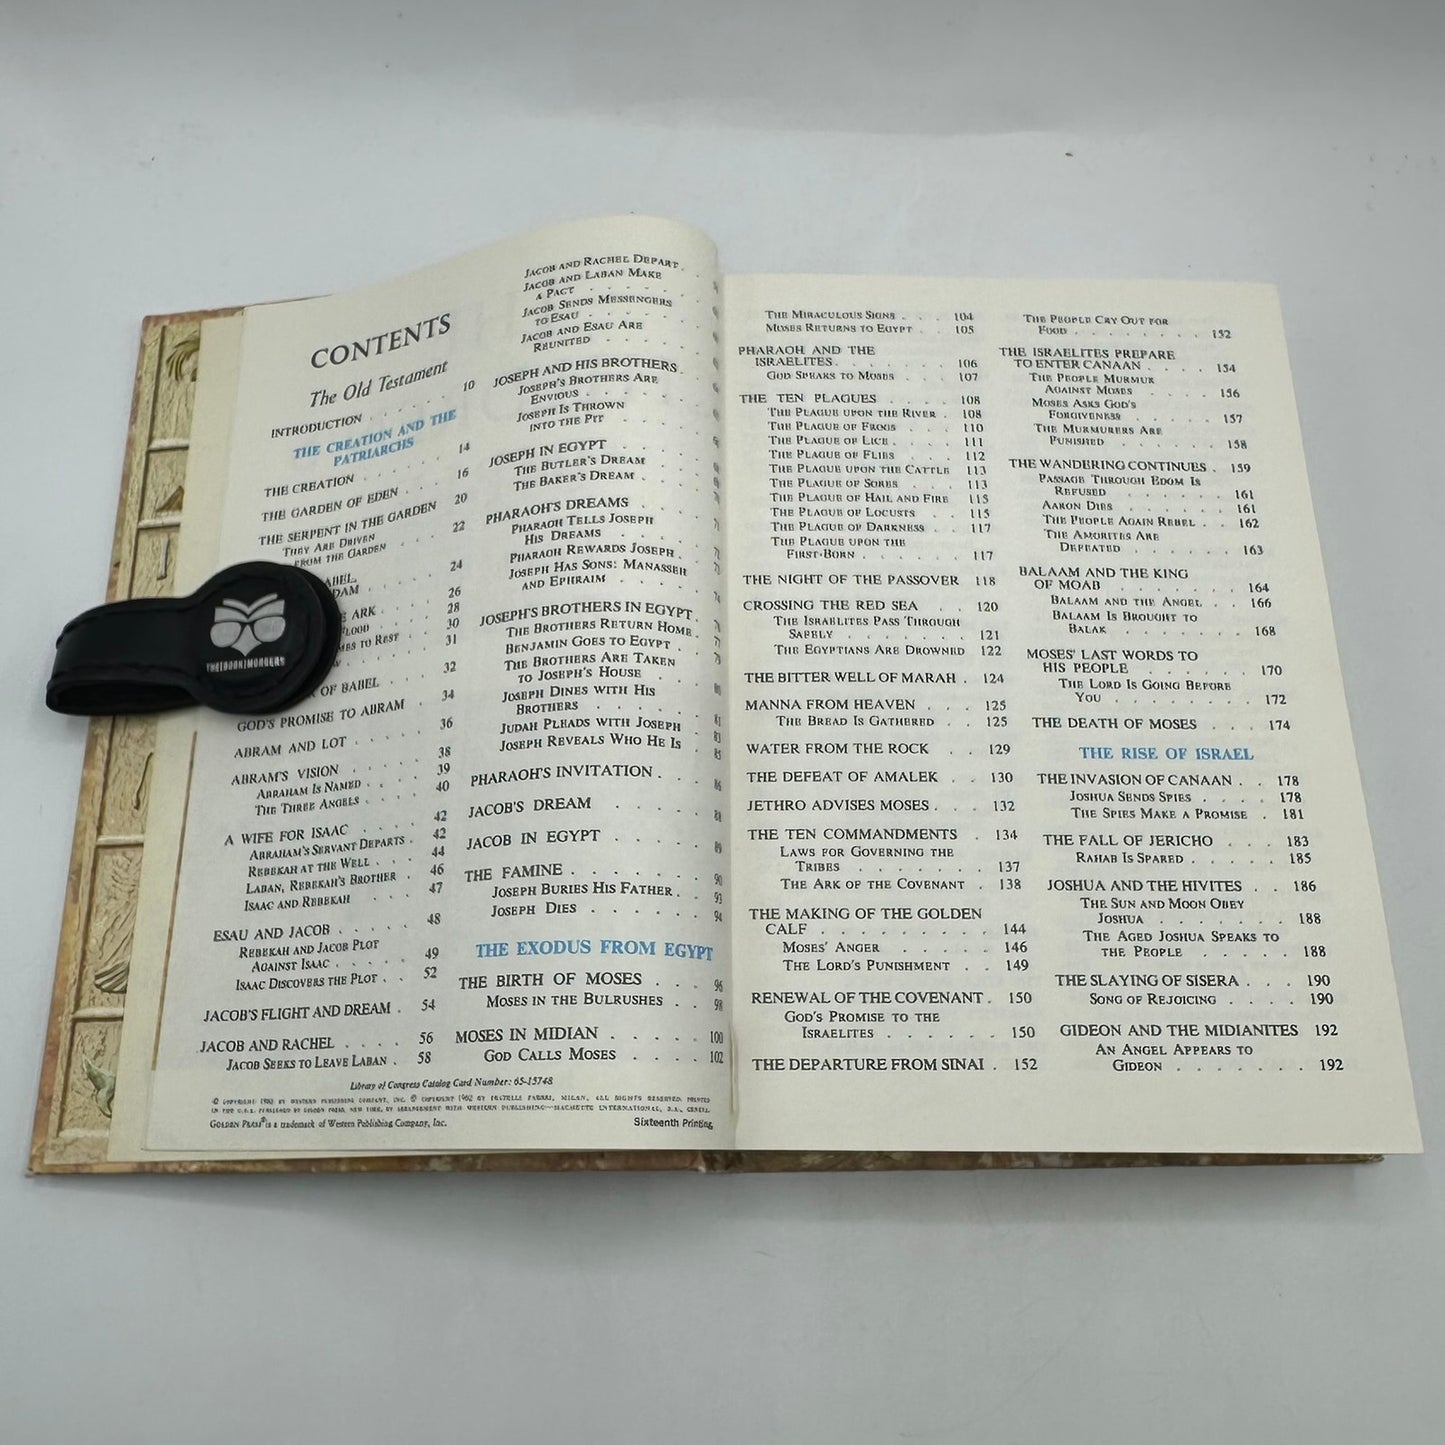 CONTENTS
The Old Testament
INTRODUCTION . . . . . . . 10
THE CREATION AND THE
PATRIARCHS
THE CREATION . . . . . . . 14
THE GARDEN OF EDEN . . . 16
THE SERPENT IN THE GARDEN 20
THEY ARE DRIVEN
FROM THE GARDEN . . . 22
ABEL 24
DAM 26
E ARK 28
FLOOD 30
MES TO REST 31
W 32
R OF BABEL 34
GOD'S PROMISE TO ABRAM . 36
ABRAM AND LOT . . . . . 38
ABRAM'S VISION . . . . . 39
ABRAHAM IS NAMED . . . .
THE THREE ANGELS . . . . 40
A WIFE FOR ISAAC . . . . 42
ABRAHAM'S SERVANT DEPARTS . 42
REBEKAH AT THE WELL . . . 44
LABAN, REBEKAH'S BROTHER . 46
ISAAC AND REBEKAH . . . 47
ESAU AND JACOB . . . . . 48
REBEKAH AND JACOB PLOT
AGAINST ISAAC . . . . . 49
ISAAC DISCOVERS THE PLOT . . 52
JACOB'S FLIGHT AND DREAM . 54
JACOB AND RACHEL . . . . 56
JACOB SEEKS TO LEAVE LABAN . 58
JACOB AND RACHEL DEPART .
JACOB AND LABAN MAKE
A PACT . . . . . .
JACOB SENDS MESSENGERS
TO ESAU . . . . . .
JACOB AND ESAU ARE
REUNITED . . . . .
JOSEPH AND HIS BROTHERS .
JOSEPH'S BROTHERS ARE
ENVIOUS . . . . . .
JOSEPH IS THROWN
INTO THE PIT . . . .
JOSEPH IN EGYPT . . . .
THE BUTLER'S DREAM . . .
THE BAKER'S DREAM . . .
PHARAOH'S DREAMS . . . .
PHARAOH TELLS JOSEPH
HIS DREAMS . . . . . 71
PHARAOH REWARDS JOSEPH . 72
JOSEPH HAS SONS: MANASSEH 73
AND EPHRAIM . . . . . 74
JOSEPH'S BROTHERS IN EGYPT .
THE BROTHERS RETURN HOME . 78
BENJAMIN GOES TO EGYPT . . 79
THE BROTHERS ARE TAKEN
TO JOSEPH'S HOUSE . . . 80
JOSEPH DINES WITH HIS
BROTHERS . . . . . . 81
JUDAH PLEADS WITH JOSEPH . 83
JOSEPH REVEALS WHO HE IS . 85
PHARAOH'S INVITATION . . . 86
JACOB'S DREAM . . . . . 88
JACOB IN EGYPT . . . . . 89
THE FAMINE . . . . . . . 90
JOSEPH BURIES HIS FATHER . . 93
JOSEPH DIES . . . . . . 94
THE EXODUS FROM EGYPT
THE BIRTH OF MOSES . . . 96
MOSES IN THE BULRUSHES . . 98
MOSES IN MIDIAN . . . . . 100
GOD CALLS MOSES . . . . 102
Library of Congress Catalog Card Number: 65-15748
GOLDEN PRESS® is a trademark of Western Publishing Company, Inc.
Sixteenth Printing,
THE MIRACULOUS SIGNS . . . 104
MOSES RETURNS TO EGYPT . . 105
PHARAOH AND THE
ISRAELITES . . . . . . . 106
GOD SPEAKS TO MOSES . . . 107
THE TEN PLAGUES . . . . 108
THE PLAGUE UPON THE RIVER . 108
THE PLAGUE OF FROGS . . . 110
THE PLAGUE OF LICE . . . . 111
THE PLAGUE OF FLIES . . . 112
THE PLAGUE UPON THE CATTLE 113
THE PLAGUE OF SORES . . . 113
THE PLAGUE OF HAIL AND FIRE 115
THE PLAGUE OF LOCUSTS . . 115
THE PLAGUE OF DARKNESS . . 117
THE PLAGUE UPON THE
FIRST-BORN . . . . . . 117
THE NIGHT OF THE PASSOVER 118
CROSSING THE RED SEA . . 120
THE ISRAELITES PASS THROUGH
SAFELY . . . . . . . 121
THE EGYPTIANS ARE DROWNED 122
THE BITTER WELL OF MARAH . 124
MANNA FROM HEAVEN . . . 125
THE BREAD IS GATHERED . . 125
WATER FROM THE ROCK . . 129
THE DEFEAT OF AMALEK . . 130
JETHRO ADVISES MOSES . . . 132
THE TEN COMMANDMENTS . 134
LAWS FOR GOVERNING THE
TRIBES . . . . . . . 137
THE ARK OF THE COVENANT . 138
THE MAKING OF THE GOLDEN
CALF . . . . . . . . . 144
MOSES' ANGER . . . . . 146
THE LORD'S PUNISHMENT . . 149
RENEWAL OF THE COVENANT . 150
GOD'S PROMISE TO THE
ISRAELITES . . . . . . 150
THE DEPARTURE FROM SINAI . 152
THE PEOPLE CRY OUT FOR
FOOD . . . . . . . . 152
THE ISRAELITES PREPARE
TO ENTER CANAAN . . . . 154
THE PEOPLE MURMUR
AGAINST MOSES . . . . 156
MOSES ASKS GOD'S
FORGIVENESS . . . . . 157
THE MURMURERS ARE
PUNISHED . . . . . . 158
THE WANDERING CONTINUES . 159
PASSAGE THROUGH EDOM IS
REFUSED . . . . . . 161
AARON DIES . . . . . . 161
THE PEOPLE AGAIN REBEL . . 162
THE AMORITES ARE
DEFEATED . . . . . . 163
BALAAM AND THE KING
OF MOAB . . . . . . . 164
BALAAM AND THE ANGEL . . 166
BALAAM IS BROUGHT TO
BALAK . . . . . . . 168
MOSES' LAST WORDS TO
HIS PEOPLE . . . . . . 170
THE LORD IS GOING BEFORE
YOU . . . . . . . . 172
THE DEATH OF MOSES . . . 174
THE RISE OF ISRAEL
THE INVASION OF CANAAN . . 178
JOSHUA SENDS SPIES . . . . 178
THE SPIES MAKE A PROMISE . 181
THE FALL OF JERICHO . . . 183
RAHAB IS SPARED . . . . . 185
JOSHUA AND THE HIVITES . . 186
THE SUN AND MOON OBEY
JOSHUA . . . . . . . 188
THE AGED JOSHUA SPEAKS TO
THE PEOPLE . . . . . 188
THE SLAYING OF SISERA . . . 190
SONG OF REJOICING . . . . 190
GIDEON AND THE MIDIANITES 192
AN ANGEL APPEARS TO
GIDEON . . . . . . . 192